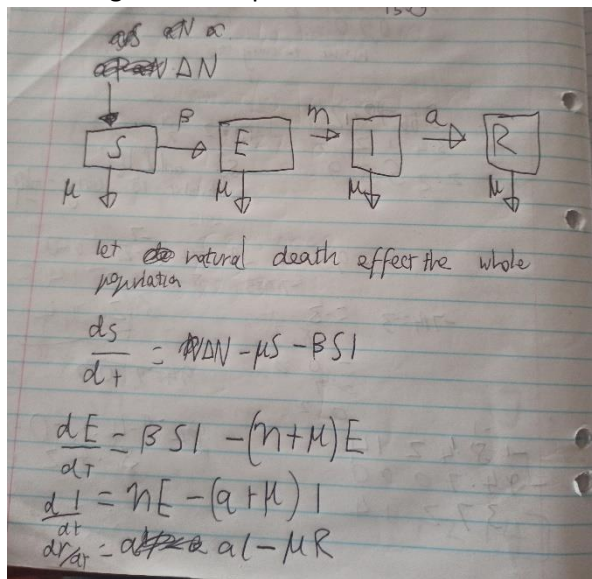 ΔN
β n a
S E I R
μ μ μ μ
let natural death effect the whole
population
dS/dt = ΔN - μS - βSI
dE/dt = βSI - (n+μ)E
dI/dt = nE - (a+μ)I
dr/dt = aI - μR